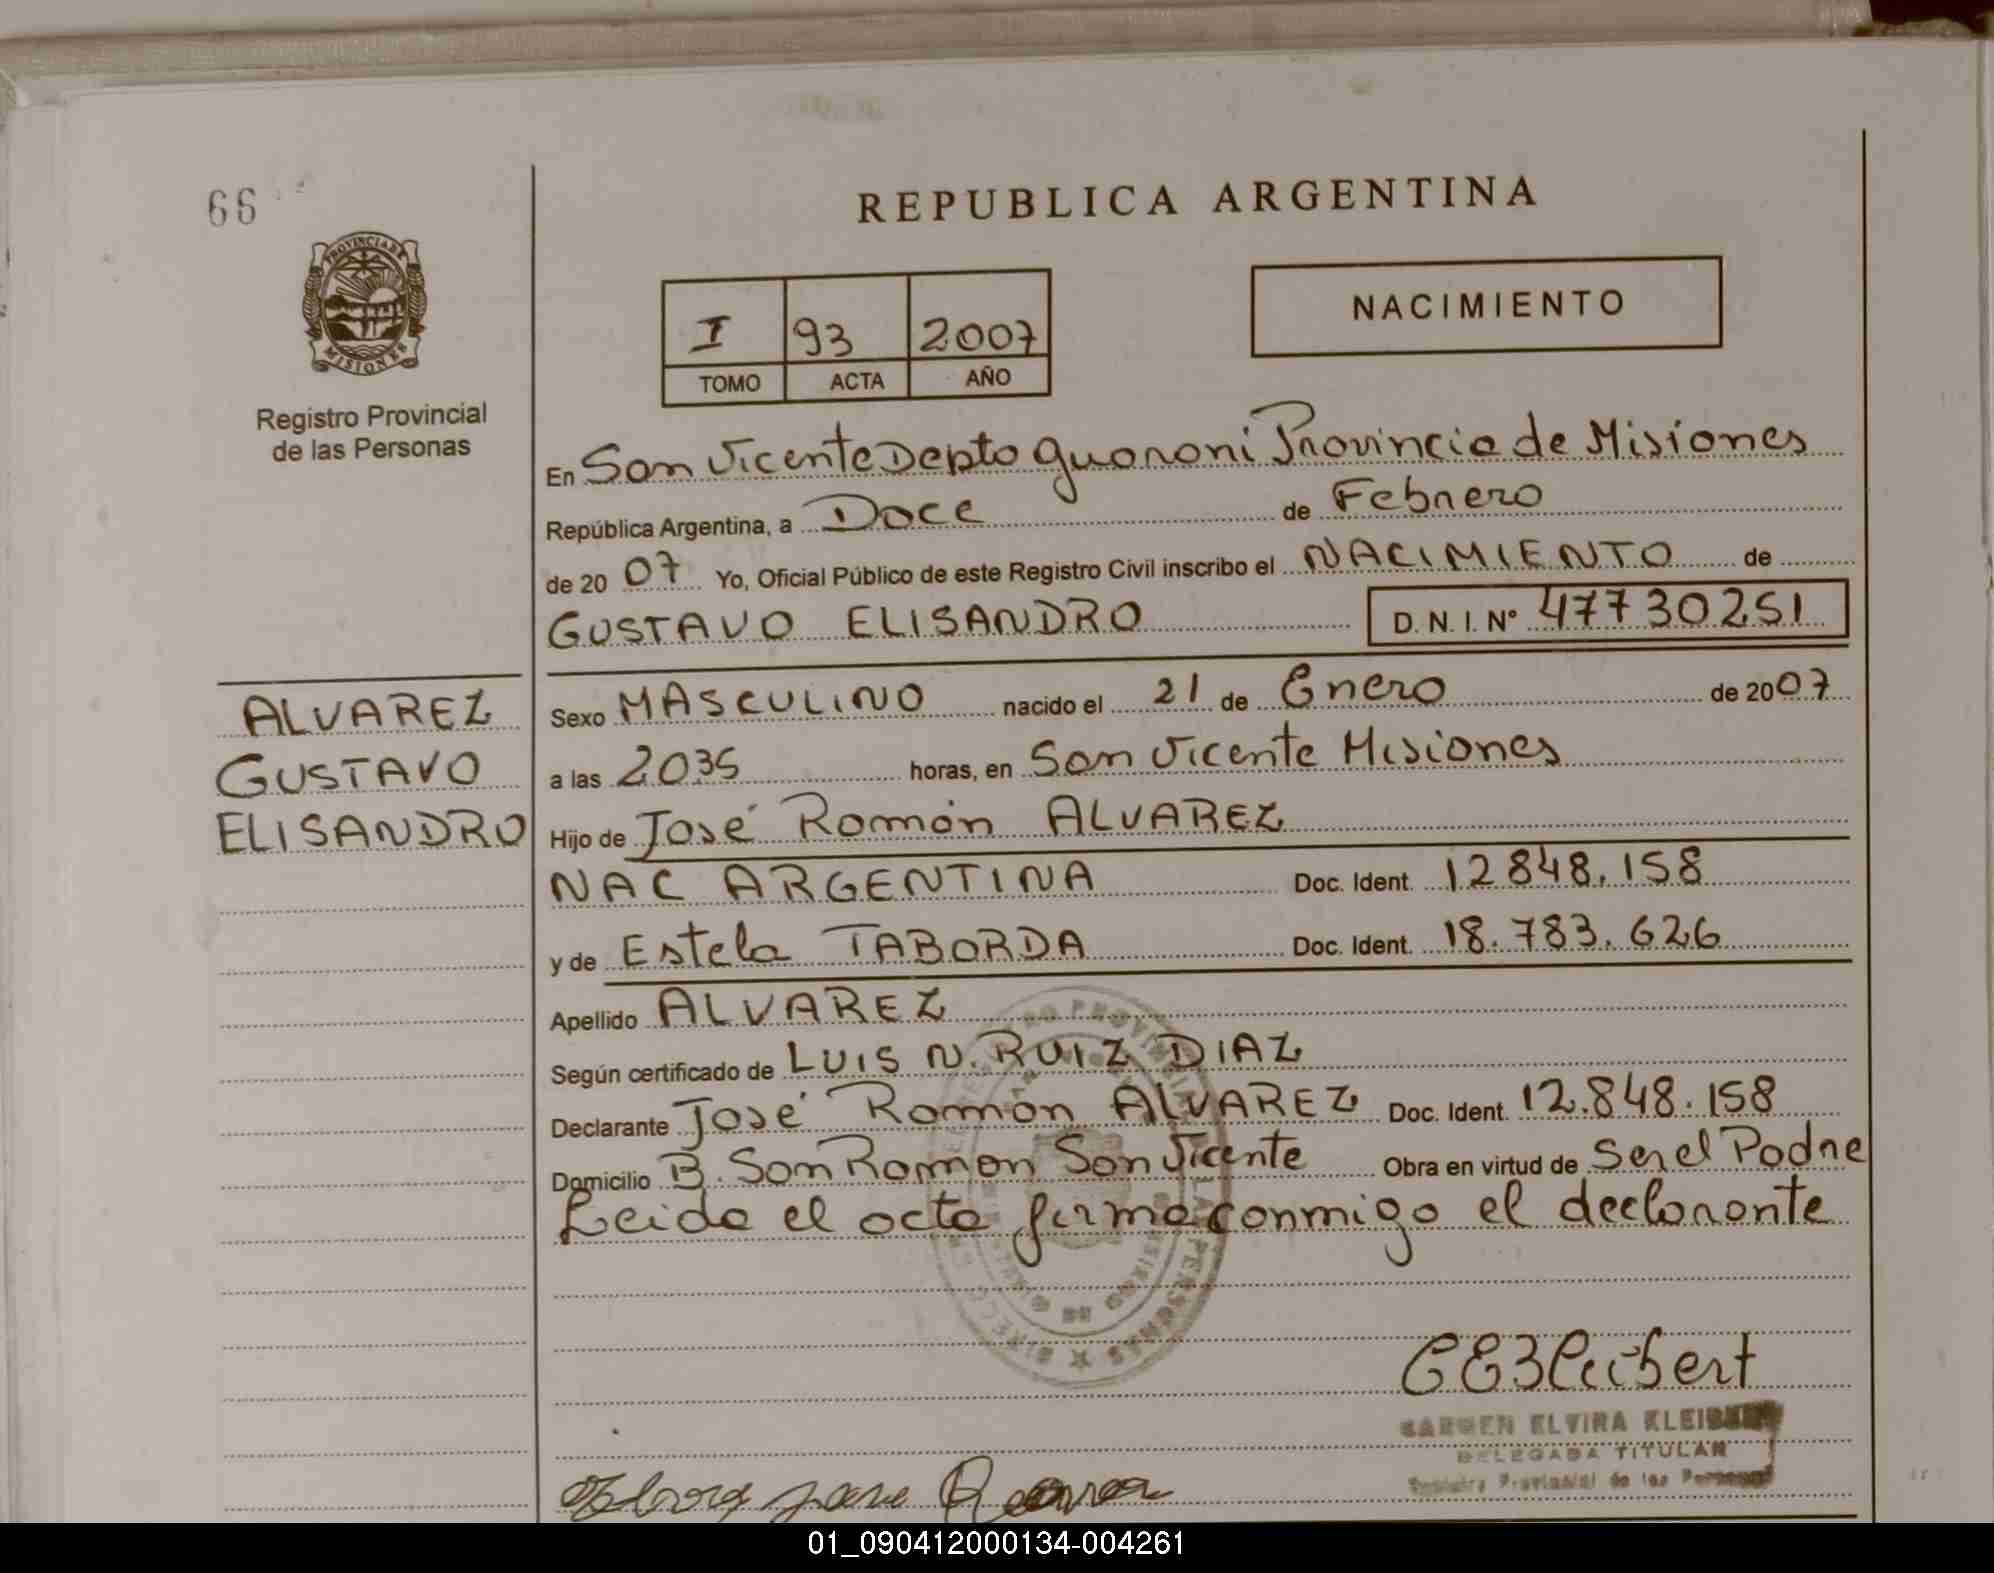 66
REPUBLICA ARGENTINA
PROVINCIA DE
MISIONES
Registro Provincial
de las Personas
I 93 2007
TOMO ACTA AÑO
NACIMIENTO
En San Vicente Depto Guaraní Provincia de Misiones
República Argentina, a Doce de Febrero
de 20 07 Yo, Oficial Público de este Registro Civil inscribo el NACIMIENTO de
GUSTAVO ELISANDRO D.N.I. Nº 47730251
ALVAREZ
GUSTAVO
ELISANDRO
Sexo MASCULINO nacido el 21 de Enero de 2007
a las 2035 horas, en San Vicente Misiones
Hijo de José Ramón ALVAREZ
NAC ARGENTINA Doc. Ident. 12848.158
y de Estela TABORDA Doc. Ident. 18.783.626
Apellido ALVAREZ
Según certificado de LUIS N. RUIZ DIAZ
Declarante José Ramón ALVAREZ Doc. Ident. 12.848.158
Domicilio B. San Ramon San Vicente Obra en virtud de Ser el Padre
Leida el acta firma conmigo el declarante
CARMEN ELVIRA
DELEGADA TITULAR
Registro Provincial de las Personas
01_090412000134-004261